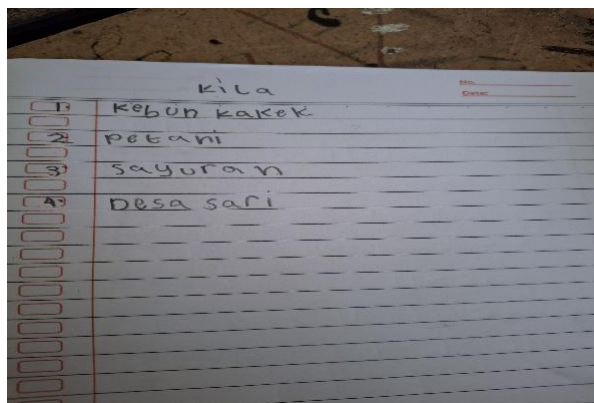 Kila
No.
Date:
1. Kebun kakek
2. petani
3. sayuran
4. Desa sari